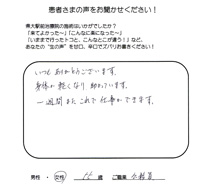 患者さまの声をお聞かせください！
希大駅前治療院の施術はいかがでしたか？
「来てよかった～」「こんなに楽になった～」
「いままで行ったトコと、こんなとこが違う！」など、
あなたの“生の声”を甘口、辛口でズバリお書きください！
いつもありがとうございます。
身体が軽くなり助かっています。
一週間またこれで仕事ができます。
男性・女性 歳 ご職業